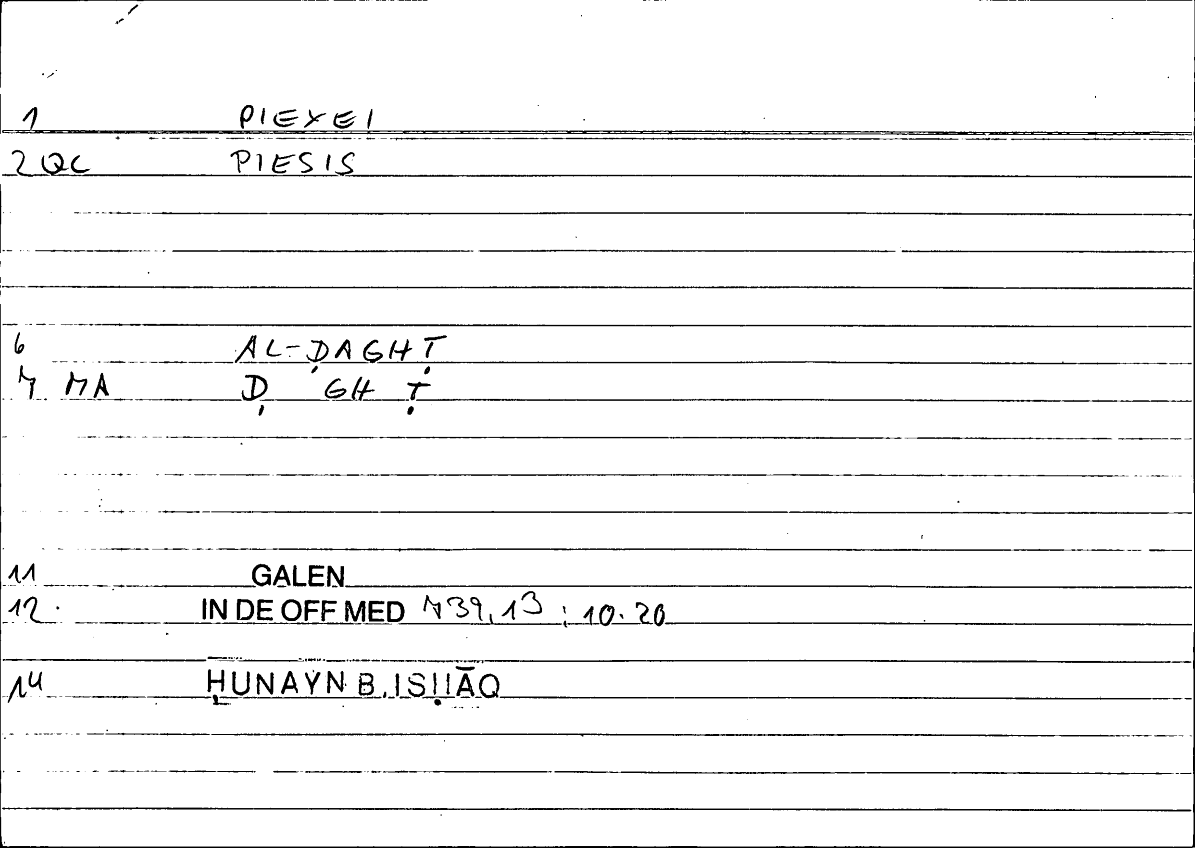 1 PIEXEI
2 QC PIESIS
6 AL-ḌAGHṬ
7 MA Ḍ GH Ṭ
11 GALEN
12 IN DE OFF MED 739,13 ; 10.20
14 ḤUNAYN B. ISḤĀQ